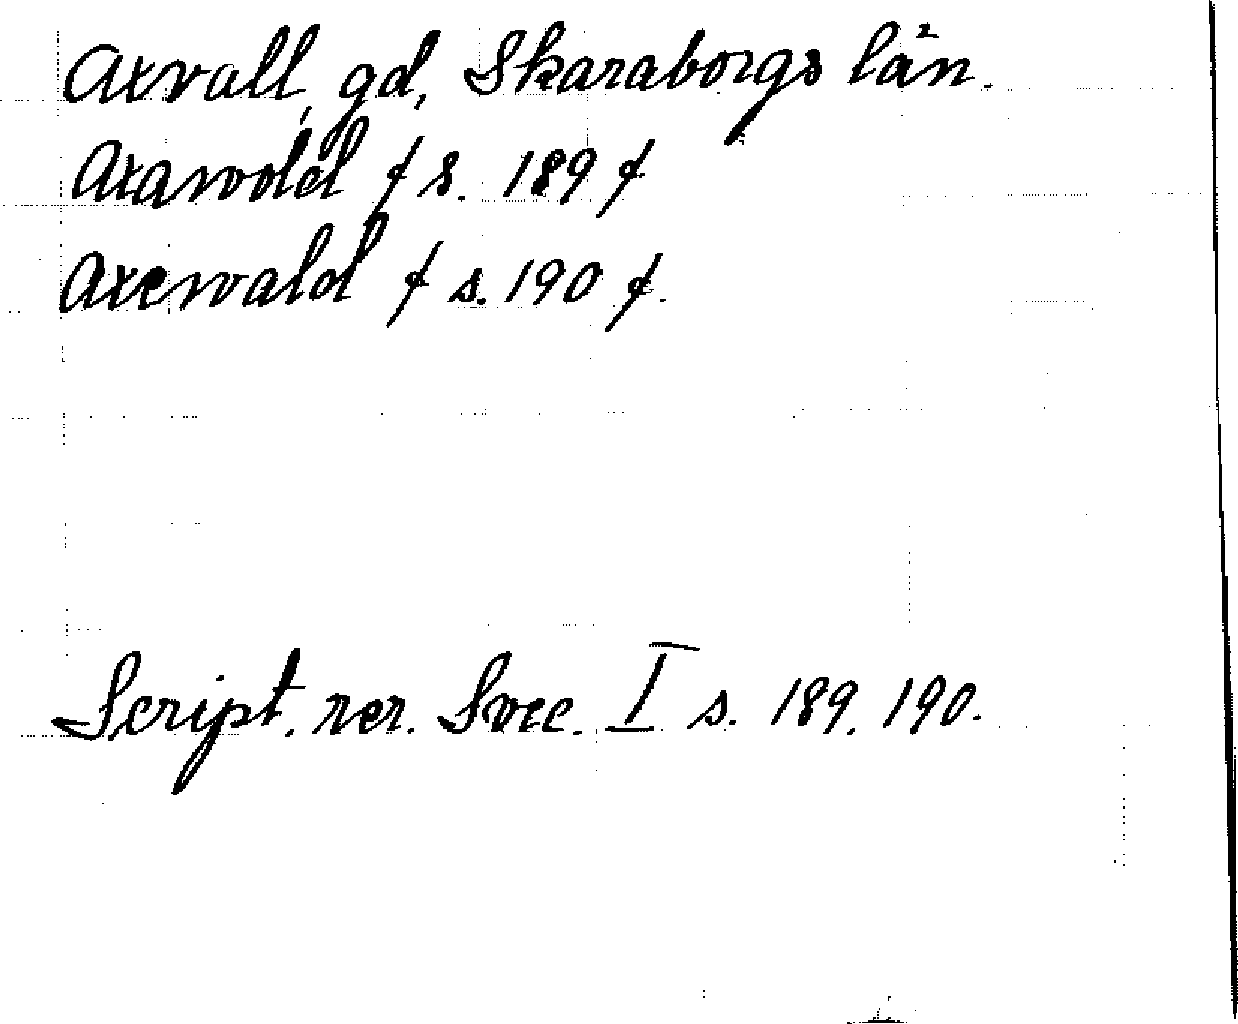 Axvall, gd, Skaraborgs län.
Axawold / s. 189 /
Axewald / s. 190 /.
Script. rer. Svec. I s. 189, 190.